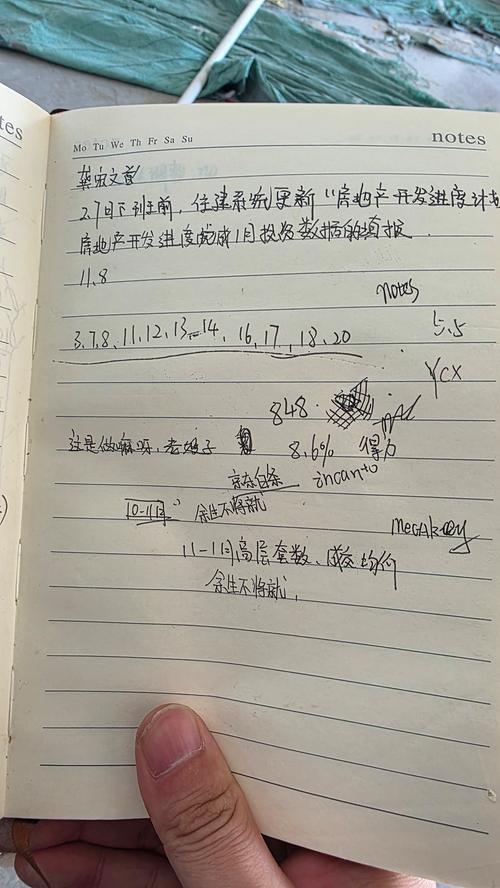 tes
Mo Tu We Th Fr Sa Su
notes
2.7日下班前，住建系统更新“房地产开发进度计
房地产开发进度完成1月投资数据的填报.
11.8
notes
3.7.8、11、12、13、14、16、17、18、20
5.5
YCX
848.
这是做嘛呀，老娘子
8.6%
得力
京东白条
incanto
10-11日
余生不将就
MegAkey
11-1月高层套数、成交均价
余生不将就，